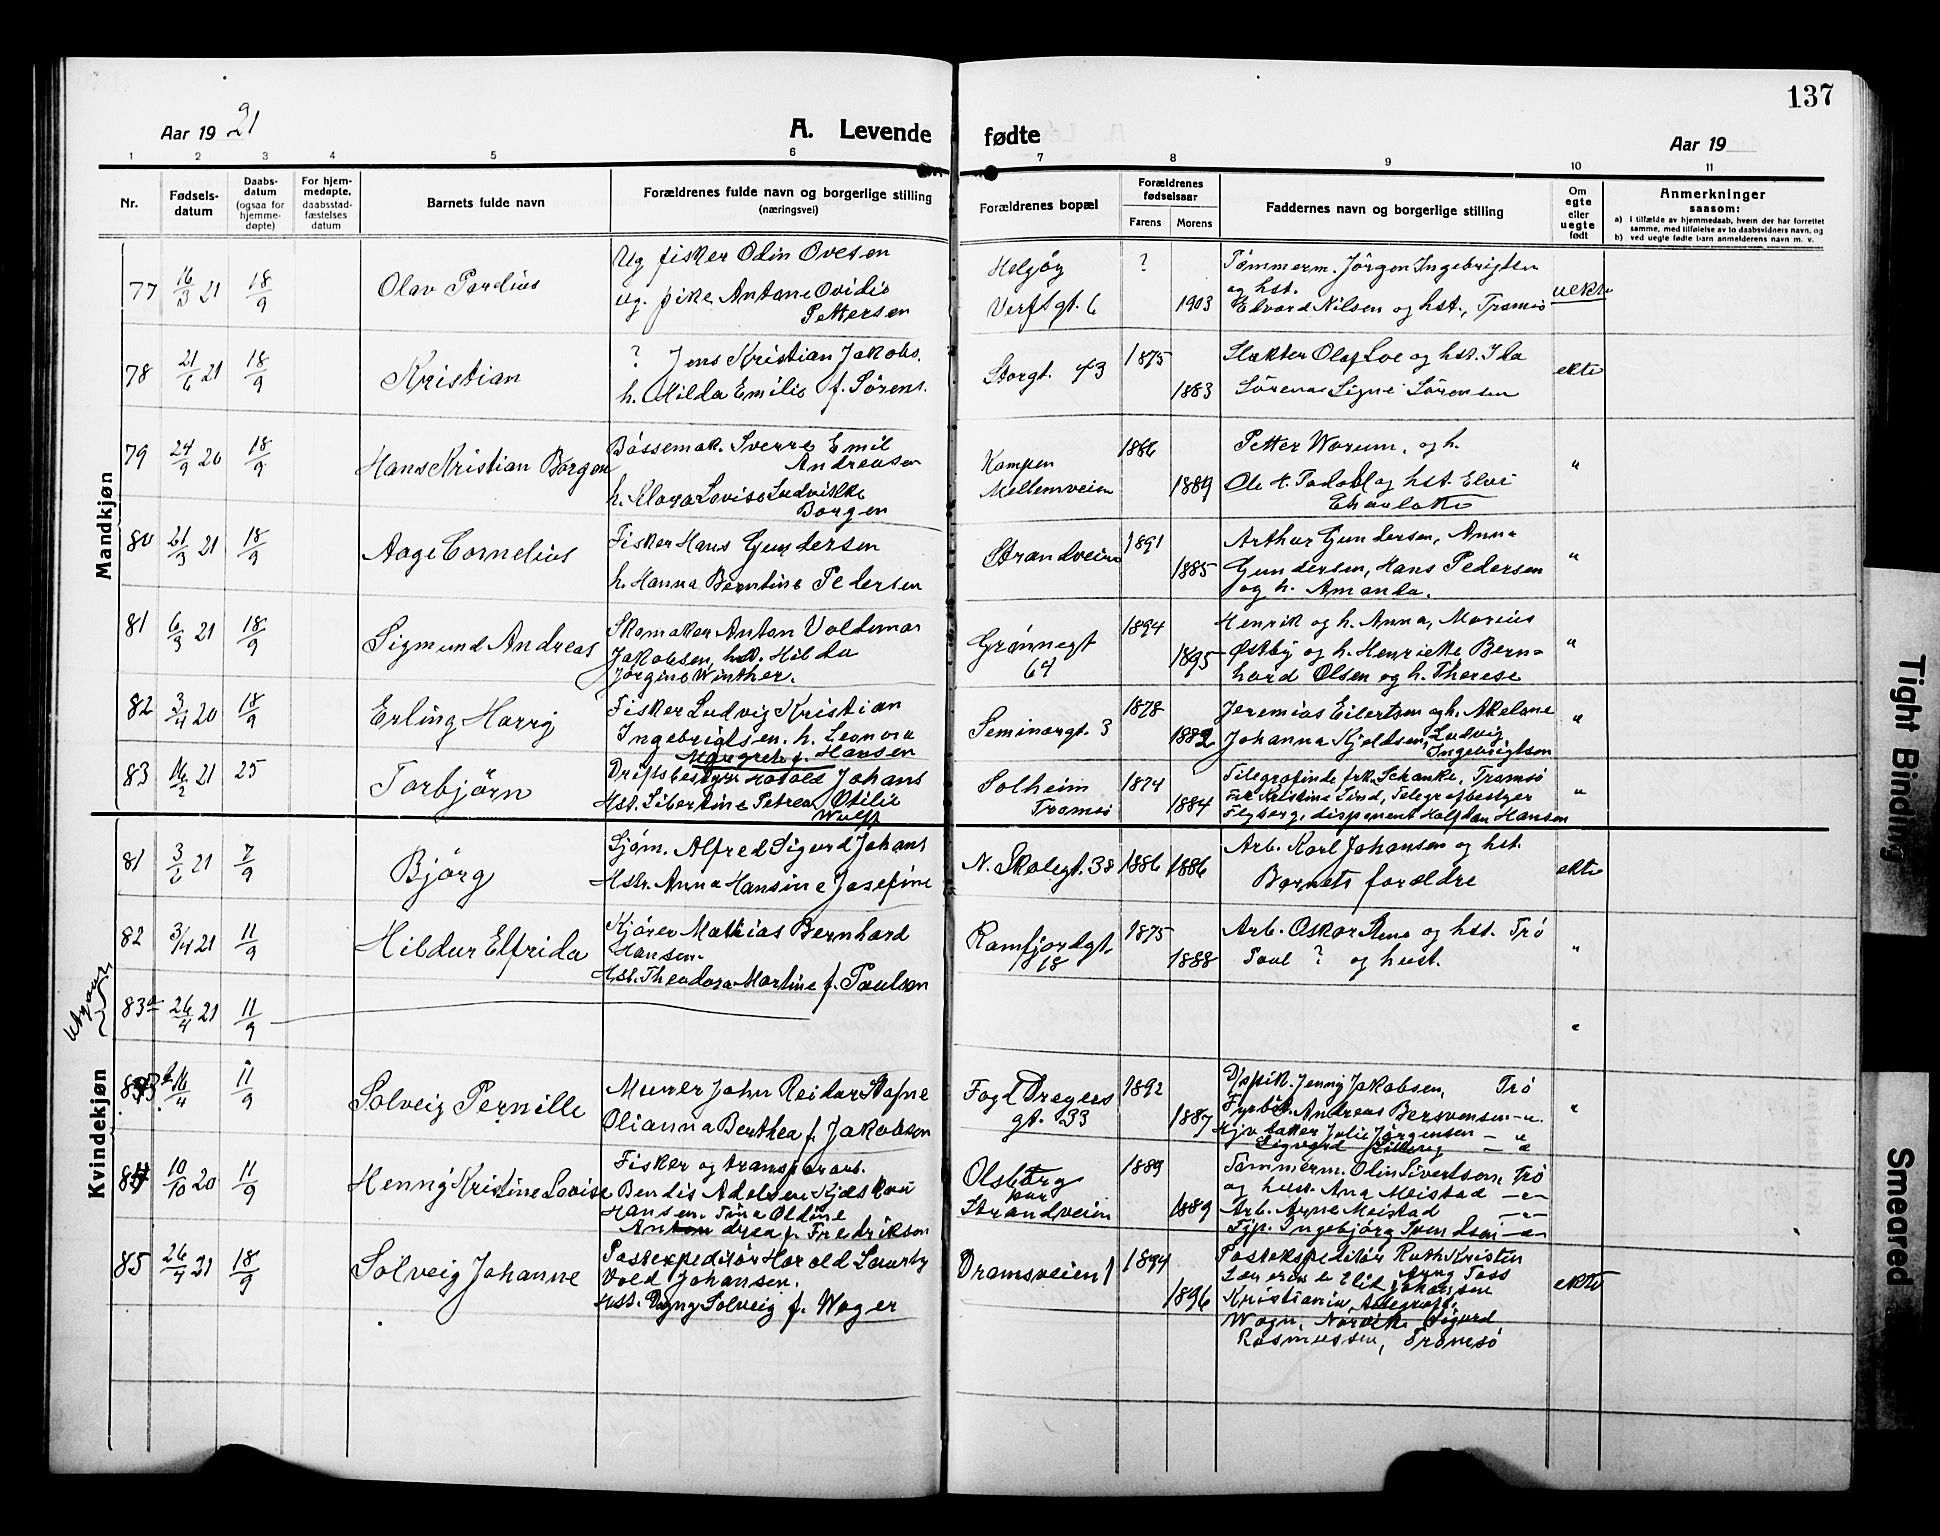 137
Aar 1921
A. Levende fødte
Aar 19
1 2 3 4 5 6 7 8 9 10 11
Nr.
Fødsels-
datum
Daabs-
datum
(ogsaa for
hjemme-
døpte)
For hjem-
medøpte,
daabsstad-
fæstelses
datum
Barnets fulde navn
Forældrenes fulde navn og borgerlige stilling
(næringsvei)
Forældrenes bopæl
Forældrenes
fødselsaar
Farens
Morens
Faddernes navn og borgerlige stilling
Om
egte
eller
uegte
født
Anmerkninger
saasom:
a) i tilfælde av hjemmedaab, hvem der har forrettet
samme, med tilføielse av to daabsvidners navn, og
b) ved uegte fødte barn anmelderens navn m. v.
Mandkjøn
77 16/3 21 18/9
Olav Pardius
Ug fisker Odin Ovesen
ug. pike Antane Ovidie
Pettersen
Helgøy
Verftsgt. 6
?
1903
Tømmerm. Jørgen Ingebrigtsen
og hst.
Edvard Nilsen og hst., Tromsø
uekte
78 21/6 21 18/9
Kristian
? Jens Kristian Jakobs.
h. Hilda Emilie f. Sørens.
Storgt. 73
1875
1883
Slakter Olaf Loe og hst. Ida
Sørensen Signe Sørensen
ekte
79 24/9 20 18/9
Hans Kristian Borgen
Bøssemak. Sverre Emil
Andreasen
h. Klara Lovise Ludvikke
Borgen
Kampen
Mellemveien
1886
1889
Petter Worum, og h.
Ole H. Todal og hst. Elvi
Charlotte
"
80 21/3 21 18/9
Aage Cornelius
Fisker Hans Gundersen
h. Hanna Berntine Pedersen
Strandveien
1891
1885
Arthur Gundersen, Anna
Gundersen, Hans Pedersen
og h. Amanda.
"
81 6/3 21 18/9
Sigmund Andreas
Skomaker Anton Voldemar
Jakobsen, hst. Hilda
Jørgine Winther.
Grønnegt
64
1894
1895
Henrik og h. Anna, Marius
Østby og h. Henriette Bern-
hard Olsen og h. Therese
"
82 3/4 20 18/9
Erling Harry
Fisker Ludvig Kristian
Ingebrigtsen. h. Leonora
Margreth f. Hansen
Seminargt. 3
1878
1882
Jeremias Eilertsen og h. Akelane
Johanna Kjeldsen, Ludvig
Ingebrigtsen
"
83 16/2 21 25
Torbjörn
Driftsbestyrer Harald Johans
Hst. Libertine Petrea Otilie
Wulff
Solheim
Tromsø
1874
1884
Telegrafinde frk. Schanke, Tromsø
Frk Kristine Lind, Telegrafbestyrer
Flyberg, disponent Halfdan Hansen
"
Kvindekjøn
81 3/6 21 7/9
Bjørg
Sjøm. Alfred Sigurd Johans
Hstr. Anna Hansine Josefine
N. Skolegt. 38
1886 1886
Arb. Karl Johansen og hst.
Barnets forældre
ekte
82 3/4 21 11/9
Hildur Elfrida
Kjører Mathias Bernhard
Hansen
Hst. Theodora Martine f. Paulsen
Ramfjordgt.
18
1875
1888
Arb. Oskar Stene og hst. Trø
Paul ? og hust.
"
Utgaar
83a 26/4 21 11/9
"
83b 16/4 11/9
Solveig Pernille
Murer John Reidar Stafne
Olianna Berthea f. Jakobsen
Fogd Dreyers
gt. 33
1892
1887
Jenny Jakobsen, Trø
Fyrbøt. Andreas Bersvensen - " -
Julie Jørgensen - " -
"
84 10/10 20 11/9
Henny Kristine Lovise
Fisker og transportarb.
Bendis Adelsen
Hansen. Tina Oldine
Andrea f. Fredrikson
Olsborg
Strandveien
1889
1889
Tømmerm. Olin Sivertsen, Trø
og hust. Ana Meistad - " -
Arb. Arne Meistad - " -
Tjp. Ingebjørg Svendsen - " -
85 26/4 21 18/9
Solveig Johanne
Postexpeditør Harald Laurby
Vold Johansen.
Hst. Dagny Solveig f. Wager
Dramsveien 1
1894
1896
Postekspeditør Ruth Kristen
Johanssen
Kristiania,
Narvik Sigurd
Rasmussen, Tromsø
ekte
Tight Binding
Smeared